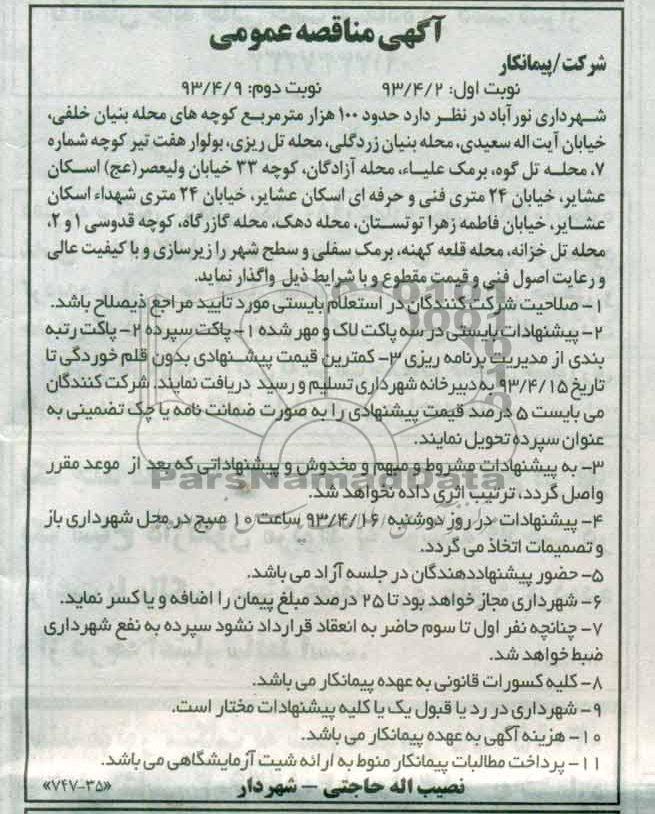 آگهی مناقصه عمومی
شرکت/پیمانکار
نوبت اول: ۹۳/۴/۲ نوبت دوم: ۹۳/۴/۹
شهرداری نورآباد در نظر دارد حدود ۱۰۰ هزار مترمربع کوچه های محله بنیان خلفی،
خیابان آیت اله سعیدی، محله بنیان زردگلی، محله تل ریزی، بولوار هفت تیر کوچه شماره
۷، محله تل گوه، برمک علیاء، محله آزادگان، کوچه ۳۳ خیابان ولیعصر(عج) اسکان
عشایر، خیابان ۲۴ متری فنی و حرفه ای اسکان عشایر، خیابان ۲۴ متری شهداء اسکان
عشایر، خیابان فاطمه زهرا توتستان، محله دهک، محله گازرگاه، کوچه قدوسی ۱ و ۲،
محله تل خزانه، محله قلعه کهنه، برمک سفلی و سطح شهر را زیرسازی و با کیفیت عالی
و رعایت اصول فنی و قیمت مقطوع و با شرایط ذیل واگذار نماید.
۱- صلاحیت شرکت کنندگان در استعلام بایستی مورد تأیید مراجع ذیصلاح باشد.
۲- پیشنهادات بایستی در سه پاکت لاک و مهر شده ۱- پاکت سپرده ۲- پاکت رتبه
بندی از مدیریت برنامه ریزی ۳- کمترین قیمت پیشنهادی بدون قلم خوردگی تا
تاریخ ۹۳/۴/۱۵ به دبیرخانه شهرداری تسلیم و رسید دریافت نمایند. شرکت کنندگان
می بایست ۵ درصد قیمت پیشنهادی را به صورت ضمانت نامه یا چک تضمینی به
عنوان سپرده تحویل نمایند.
۳- به پیشنهادات مشروط و مبهم و مخدوش و پیشنهاداتی که بعد از موعد مقرر
واصل گردد، ترتیب اثری داده نخواهد شد.
ParsNamadData
۴- پیشنهادات در روز دوشنبه ۹۳/۴/۱۶ ساعت ۱۰ صبح در محل شهرداری باز
و تصمیمات اتخاذ می گردد.
۵- حضور پیشنهاددهندگان در جلسه آزاد می باشد.
۶- شهرداری مجاز خواهد بود تا ۲۵ درصد مبلغ پیمان را اضافه و یا کسر نماید.
۷- چنانچه نفر اول تا سوم حاضر به انعقاد قرارداد نشود سپرده به نفع شهرداری
ضبط خواهد شد.
۸- کلیه کسورات قانونی به عهده پیمانکار می باشد.
۹- شهرداری در رد یا قبول یک یا کلیه پیشنهادات مختار است.
۱۰- هزینه آگهی به عهده پیمانکار می باشد.
۱۱- پرداخت مطالبات پیمانکار منوط به ارائه شیت آزمایشگاهی می باشد.
نصیب اله حاجتی - شهردار «۷۴۷-۳۵»